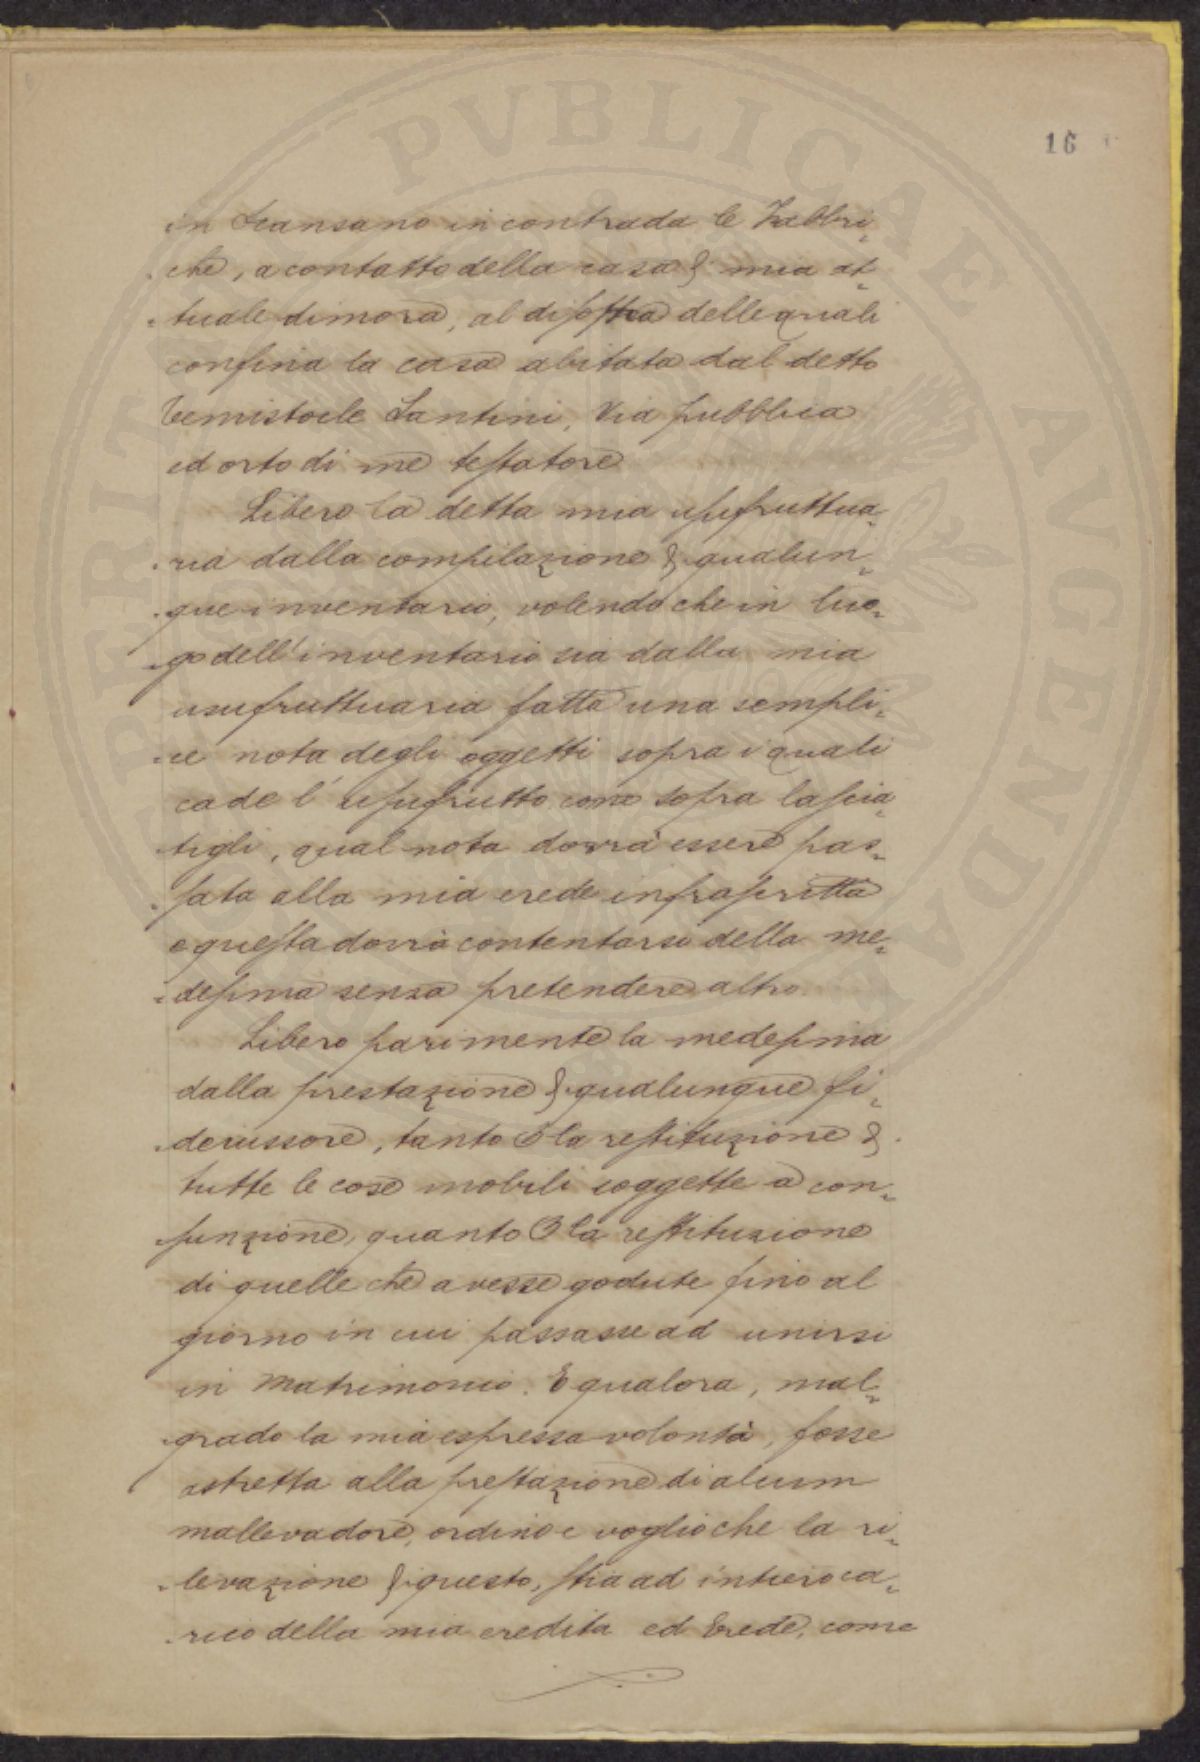 16
in Scansano in contrada le Fabbri-
-che, a contatto della casa di mia at-
-tuale dimora, al disotto delle quali
confina la casa abitata dal detto
Temistocle Santini, Via pubblica
ed orto di me testatore
Libero la detta mia usufruttua-
-ria dalla compilazione di qualun-
-que inventario, volendo che in luo-
-go dell'inventario sia dalla mia
usufruttuaria fatta una sempli-
-ce nota degli oggetti sopra i quali
cade l'usufrutto come sopra lascia-
-tigli, qual nota dovrà essere pas-
-sata alla mia erede infrascritta
e questa dovrà contentarsi della me-
-desima senza pretendere altro.
Libero parimente la medesima
dalla prestazione di qualunque fi-
-deiussore, tanto la restituzione di
tutte le cose mobili soggette a con-
-sunzione, quanto la restituzione
di quelle che avesse godute fino al
giorno in cui passasse ad unirsi
in Matrimonio. E qualora, mal-
-grado la mia espressa volontà, fosse
astretta alla prestazione di alcun
mallevadore, ordino e voglio che la ri-
-levazione di questo, stia ad intiero ca-
-rico della mia eredita ed Erede, come
PERITVRA PVBLICAE AVGENDAE